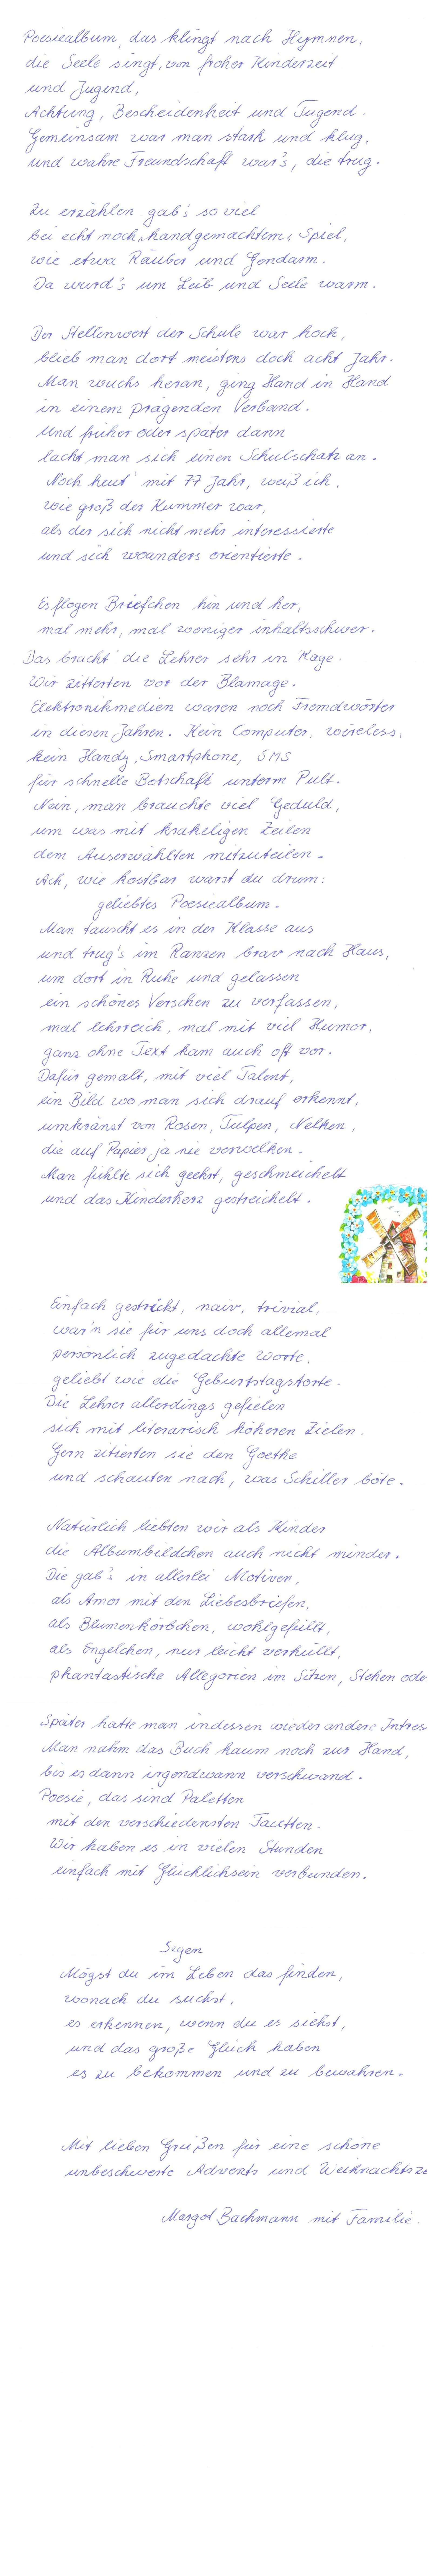 Poesiealbum, das klingt nach Hymnen,
die Seele singt, von froher Kinderzeit
und Jugend,
Achtung, Bescheidenheit und Tugend.
Gemeinsam war man stark und klug,
und wahre Freundschaft war's, die trug.
Zu erzählen gab's so viel
bei echt noch „handgemachtem“ Spiel,
wie etwa Räuber und Gendarm.
Da wurd's um Leib und Seele warm.
Der Stellenwert der Schule war hoch,
blieb man dort meistens doch acht Jahr.
Man wuchs heran, ging Hand in Hand
in einem prägenden Verband.
Und früher oder später dann
lacht man sich einen Schulschatz an.
Noch heut' mit 77 Jahr, weiß ich,
wie groß der Kummer war,
als der sich nicht mehr interessierte
und sich woanders orientierte.
Es flogen Briefchen hin und her,
mal mehr, mal weniger inhaltsschwer.
Das bracht' die Lehrer sehr in Rage.
Wir zitterten vor der Blamage.
Elektronikmedien waren noch Fremdwörter
in diesen Jahren. Kein Computer, wireless,
kein Handy, Smartphone, SMS
für schnelle Botschaft unterm Pult.
Nein, man brauchte viel Geduld,
um was mit krakeligen Zeilen
dem Auserwählten mitzuteilen.
Ach, wie kostbar warst du drum:
geliebtes Poesiealbum.
Man tauscht es in der Klasse aus
und trug's im Ranzen brav nach Haus,
um dort in Ruhe und gelassen
ein schönes Verschen zu verfassen,
mal lehrreich, mal mit viel Humor,
ganz ohne Text kam auch oft vor.
Dafür gemalt, mit viel Talent,
ein Bild wo man sich drauf erkennt,
umkränzt von Rosen, Tulpen, Nelken,
die auf Papier ja nie verwelken.
Man fühlte sich geehrt, geschmeichelt
und das Kinderherz gestreichelt.
Einfach gestrickt, naiv, trivial,
war'n sie für uns doch allemal
persönlich zugedachte Worte,
geliebt wie die Geburtstagstorte.
Die Lehrer allerdings gefielen
sich mit literarisch höheren Zielen.
Gern zitierten sie den Goethe
und schauten nach, was Schiller böte.
Natürlich liebten wir als Kinder
die Albumbildchen auch nicht minder.
Die gab's in allerlei Motiven,
als Amor mit den Liebesbriefen,
als Blumenkörbchen, wohlgefüllt,
als Engelchen, nur leicht verhüllt,
phantastische Allegorien im Sitzen, Stehen ode
Später hatte man indessen wieder andere Intres
Man nahm das Buch kaum noch zur Hand,
bis es dann irgendwann verschwand.
Poesie, das sind Paletten
mit den verschiedensten Facetten.
Wir haben es in vielen Stunden
einfach mit Glücklichsein verbunden.
Segen
Mögst du im Leben das finden,
wonach du suchst,
es erkennen, wenn du es siehst,
und das große Glück haben
es zu bekommen und zu bewahren.
Mit lieben Grüßen für eine schöne
unbeschwerte Advents und Weihnachtsze
Margot Bachmann mit Familie.